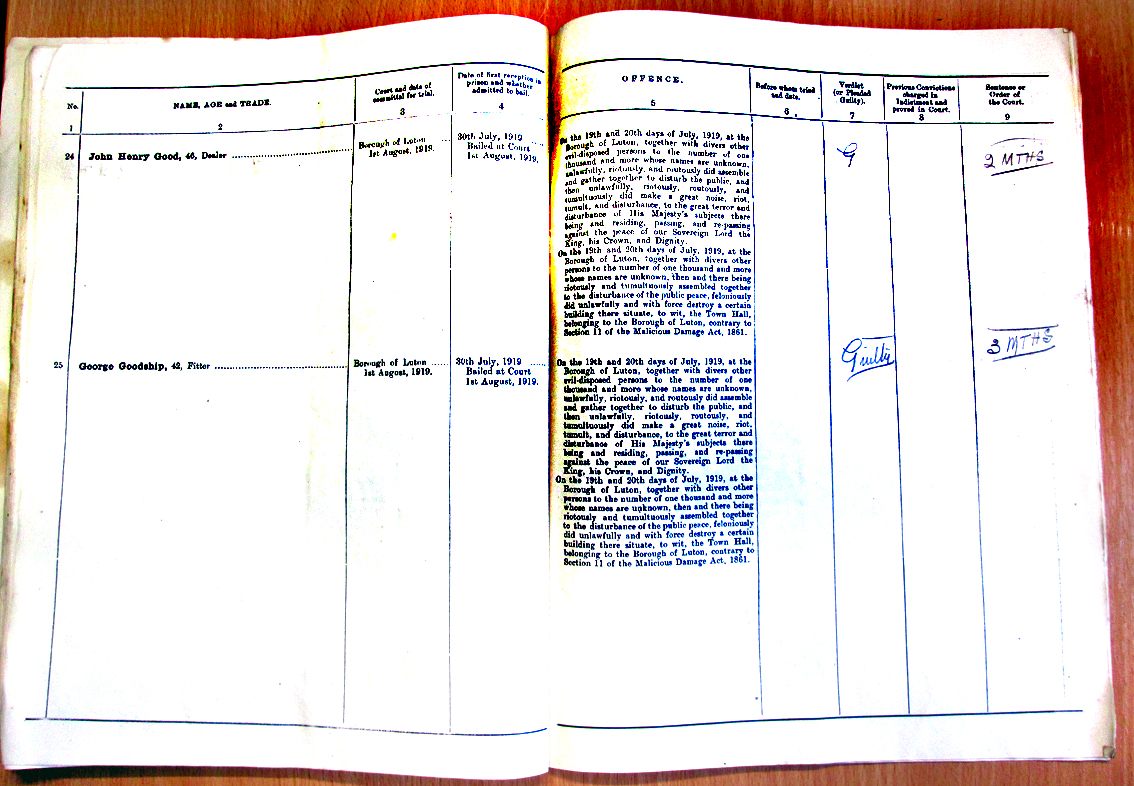 No.
NAME, AGE and TRADE.
Court and date of
committal for trial.
Date of first reception in
prison and whether
admitted to bail.
OFFENCE.
Before whom tried
and date.
Verdict
(or Pleaded
Guilty).
Previous Convictions
charged in
Indictment and
proved in Court.
Sentence or
Order of
the Court.
1
2
3
4
5
6
7
8
9
24
John Henry Good, 46, Dealer
Borough of Luton
1st August, 1919.
30th July, 1919
Bailed at Court
1st August, 1919.
On the 19th and 20th days of July, 1919, at the
Borough of Luton, together with divers other
evil-disposed persons to the number of one
thousand and more whose names are unknown,
unlawfully, riotously, and routously did assemble
and gather together to disturb the public, and
then unlawfully, riotously, routously, and
tumultuously did make a great noise, riot,
tumult, and disturbance, to the great terror and
disturbance of His Majesty's subjects there
being and residing, passing, and re-passing
against the peace of our Sovereign Lord the
King, his Crown, and Dignity.
On the 19th and 20th days of July, 1919, at the
Borough of Luton, together with divers other
persons to the number of one thousand and more
whose names are unknown, then and there being
riotously and tumultuously assembled together
to the disturbance of the public peace, feloniously
did unlawfully and with force destroy a certain
building there situate, to wit, the Town Hall,
belonging to the Borough of Luton, contrary to
Section 11 of the Malicious Damage Act, 1861.
G
2 MTHS
25
George Goodship, 42, Fitter
Borough of Luton
1st August, 1919.
30th July, 1919
Bailed at Court
1st August, 1919.
On the 19th and 20th days of July, 1919, at the
Borough of Luton, together with divers other
evil-disposed persons to the number of one
thousand and more whose names are unknown,
unlawfully, riotously, and routously did assemble
and gather together to disturb the public, and
then unlawfully, riotously, routously, and
tumultuously did make a great noise, riot,
tumult, and disturbance, to the great terror and
disturbance of His Majesty's subjects there
being and residing, passing, and re-passing
against the peace of our Sovereign Lord the
King, his Crown, and Dignity.
On the 19th and 20th days of July, 1919, at the
Borough of Luton, together with divers other
persons to the number of one thousand and more
whose names are unknown, then and there being
riotously and tumultuously assembled together
to the disturbance of the public peace, feloniously
did unlawfully and with force destroy a certain
building there situate, to wit, the Town Hall,
belonging to the Borough of Luton, contrary to
Section 11 of the Malicious Damage Act, 1861.
Guilty
3 MTHS